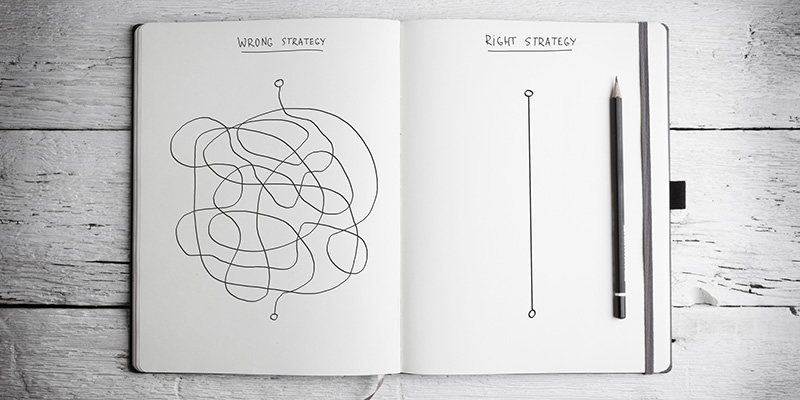 WRONG STRATEGY
RIGHT STRATEGY